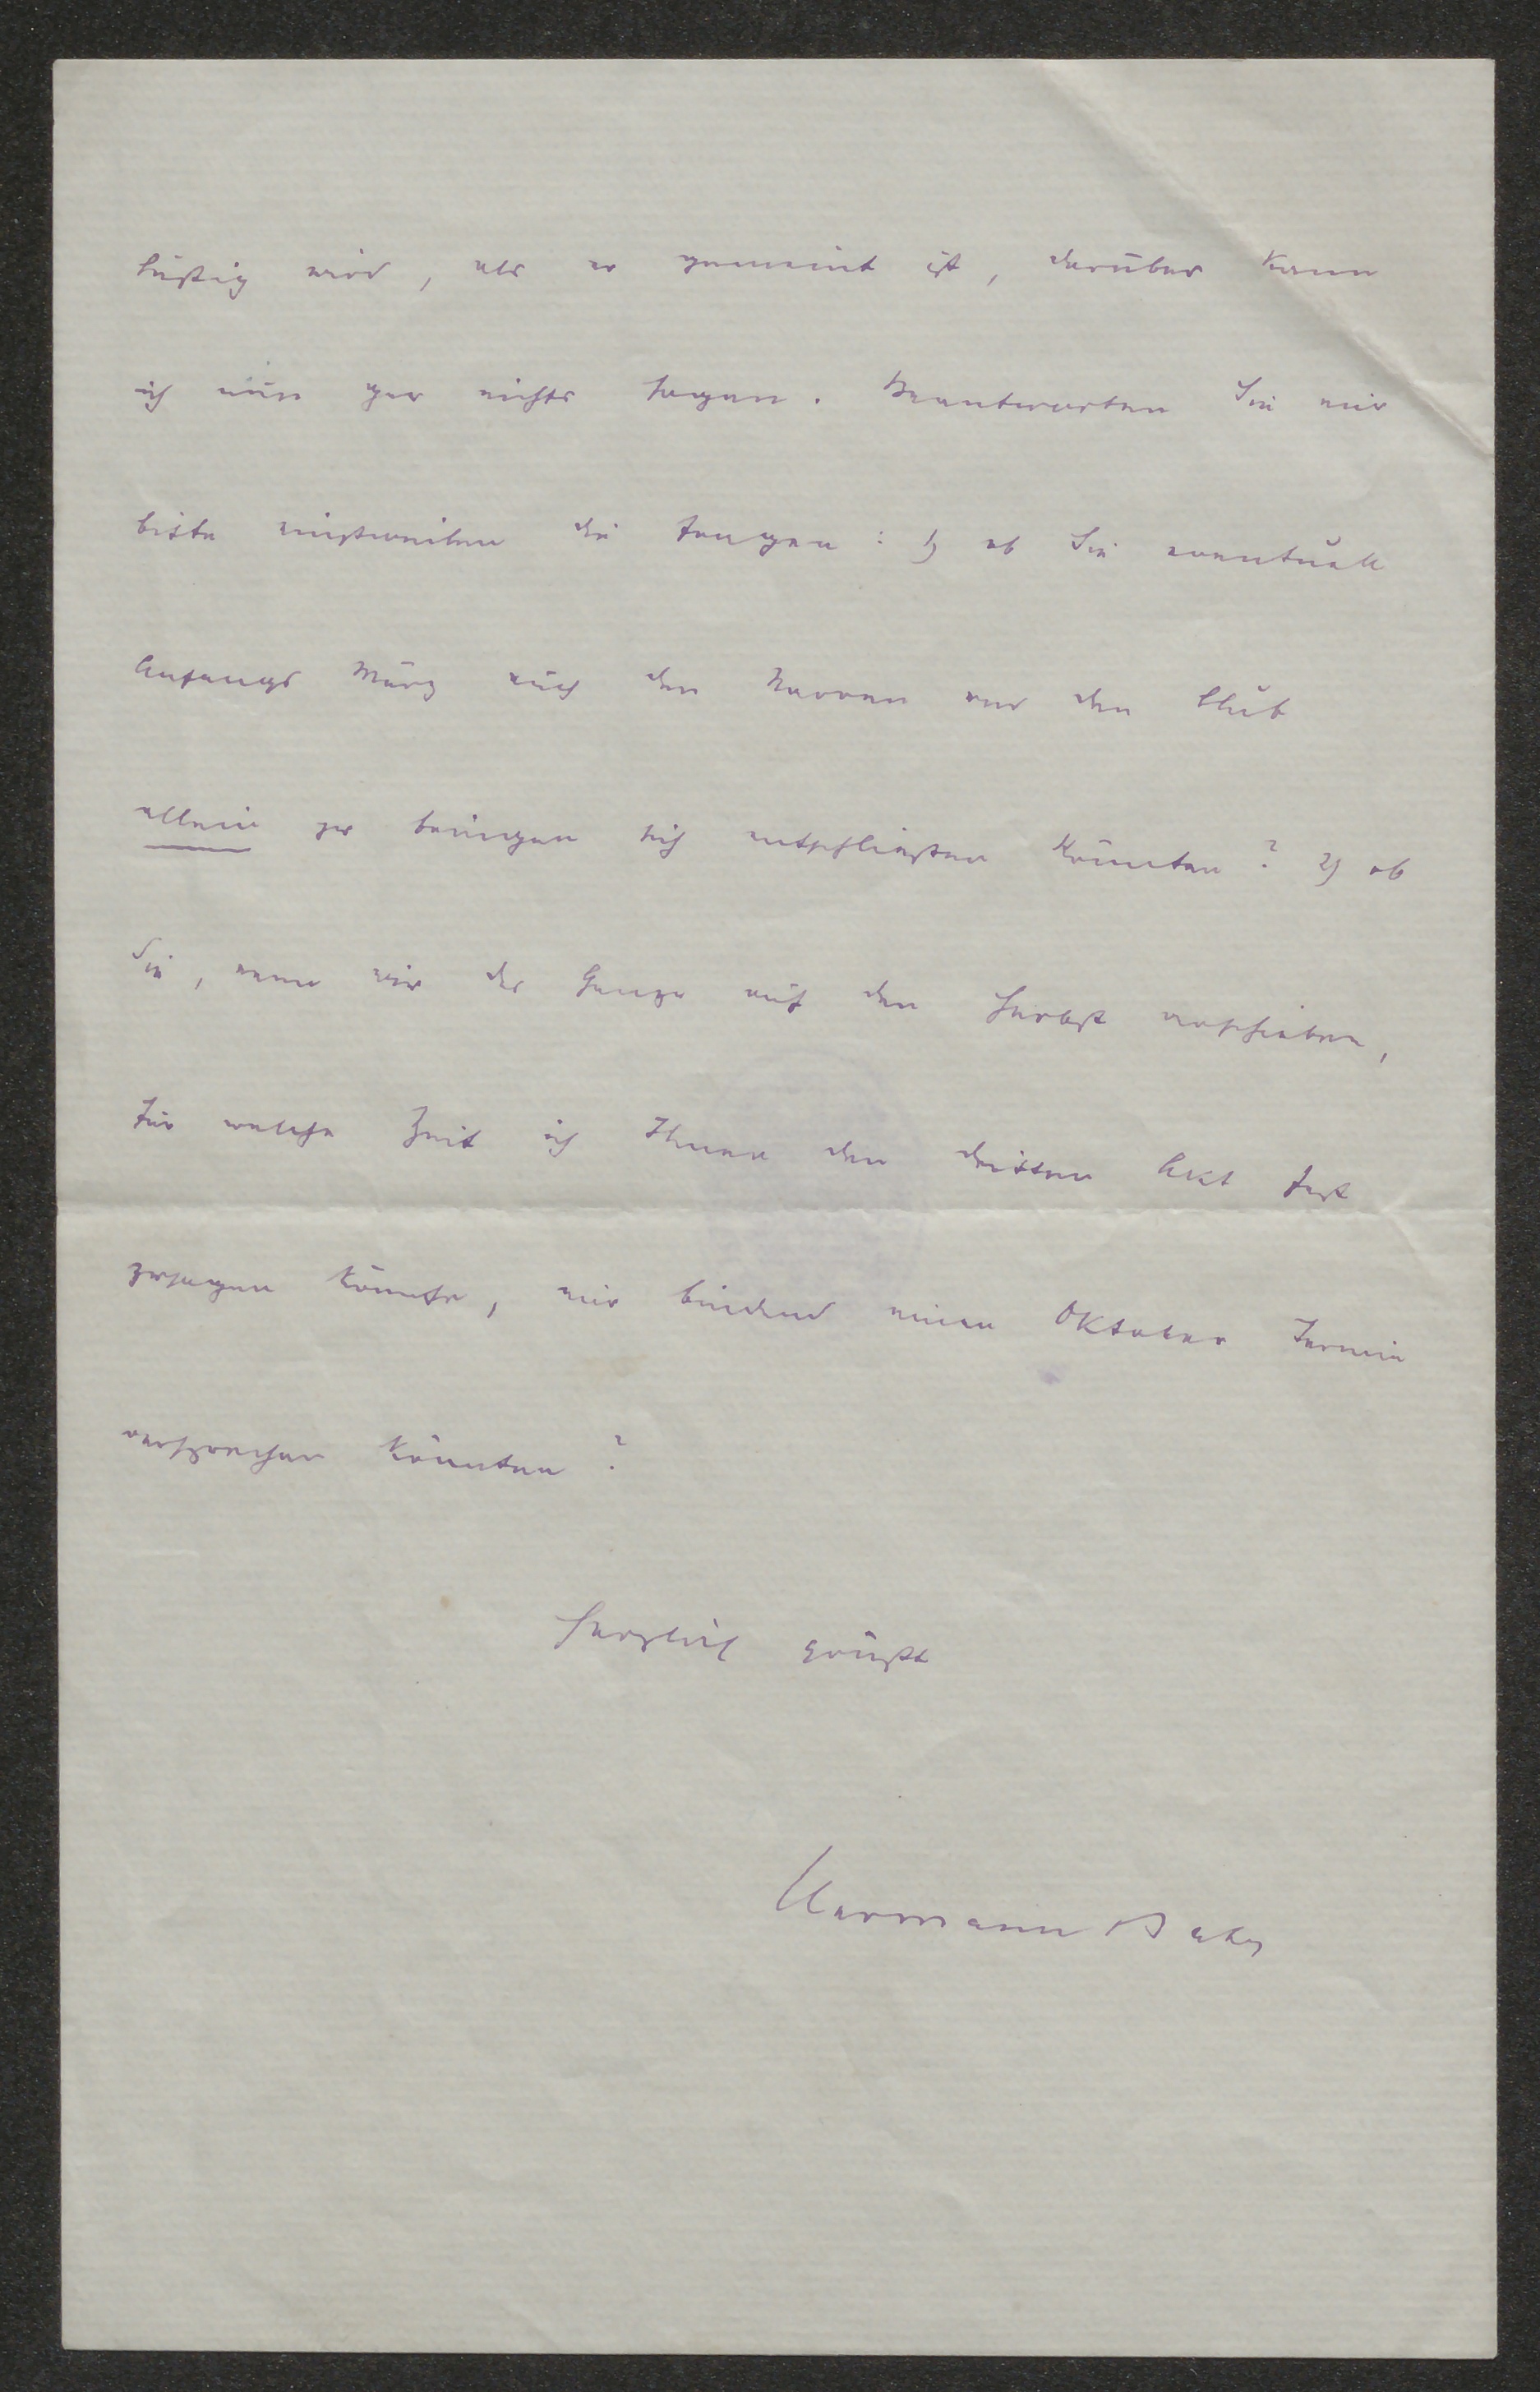 lustig wird, als er gemeint ist, darüber kann
ich nun gar nichts sagen. Beantworten Sie mir
bitte einstweilen die Fragen: 1) ob Sie eventuell
Anfangs März auch den Narren und den Club
allein zu bringen sich entschließen könnten? 2) ob
Sie, wenn wir das Ganze auf den Herbst verschieben,
für welche Zeit ich Ihnen den dritten Akt fest
zusagen könnte, mir bindend einen Oktober Termin
versprechen könnten?
Herzlich grüßt
Hermann Bahr